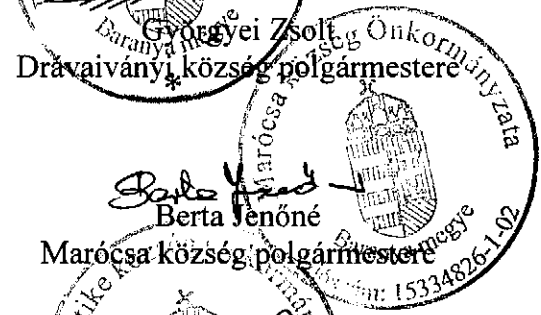 Baranya megye
Györgyei Zsolt
Drávaiványi község polgármestere
*
Marócsa község Önkormányzata
Baranya megye
15334826-1-02
Berta Jenőné
Marócsa község polgármestere